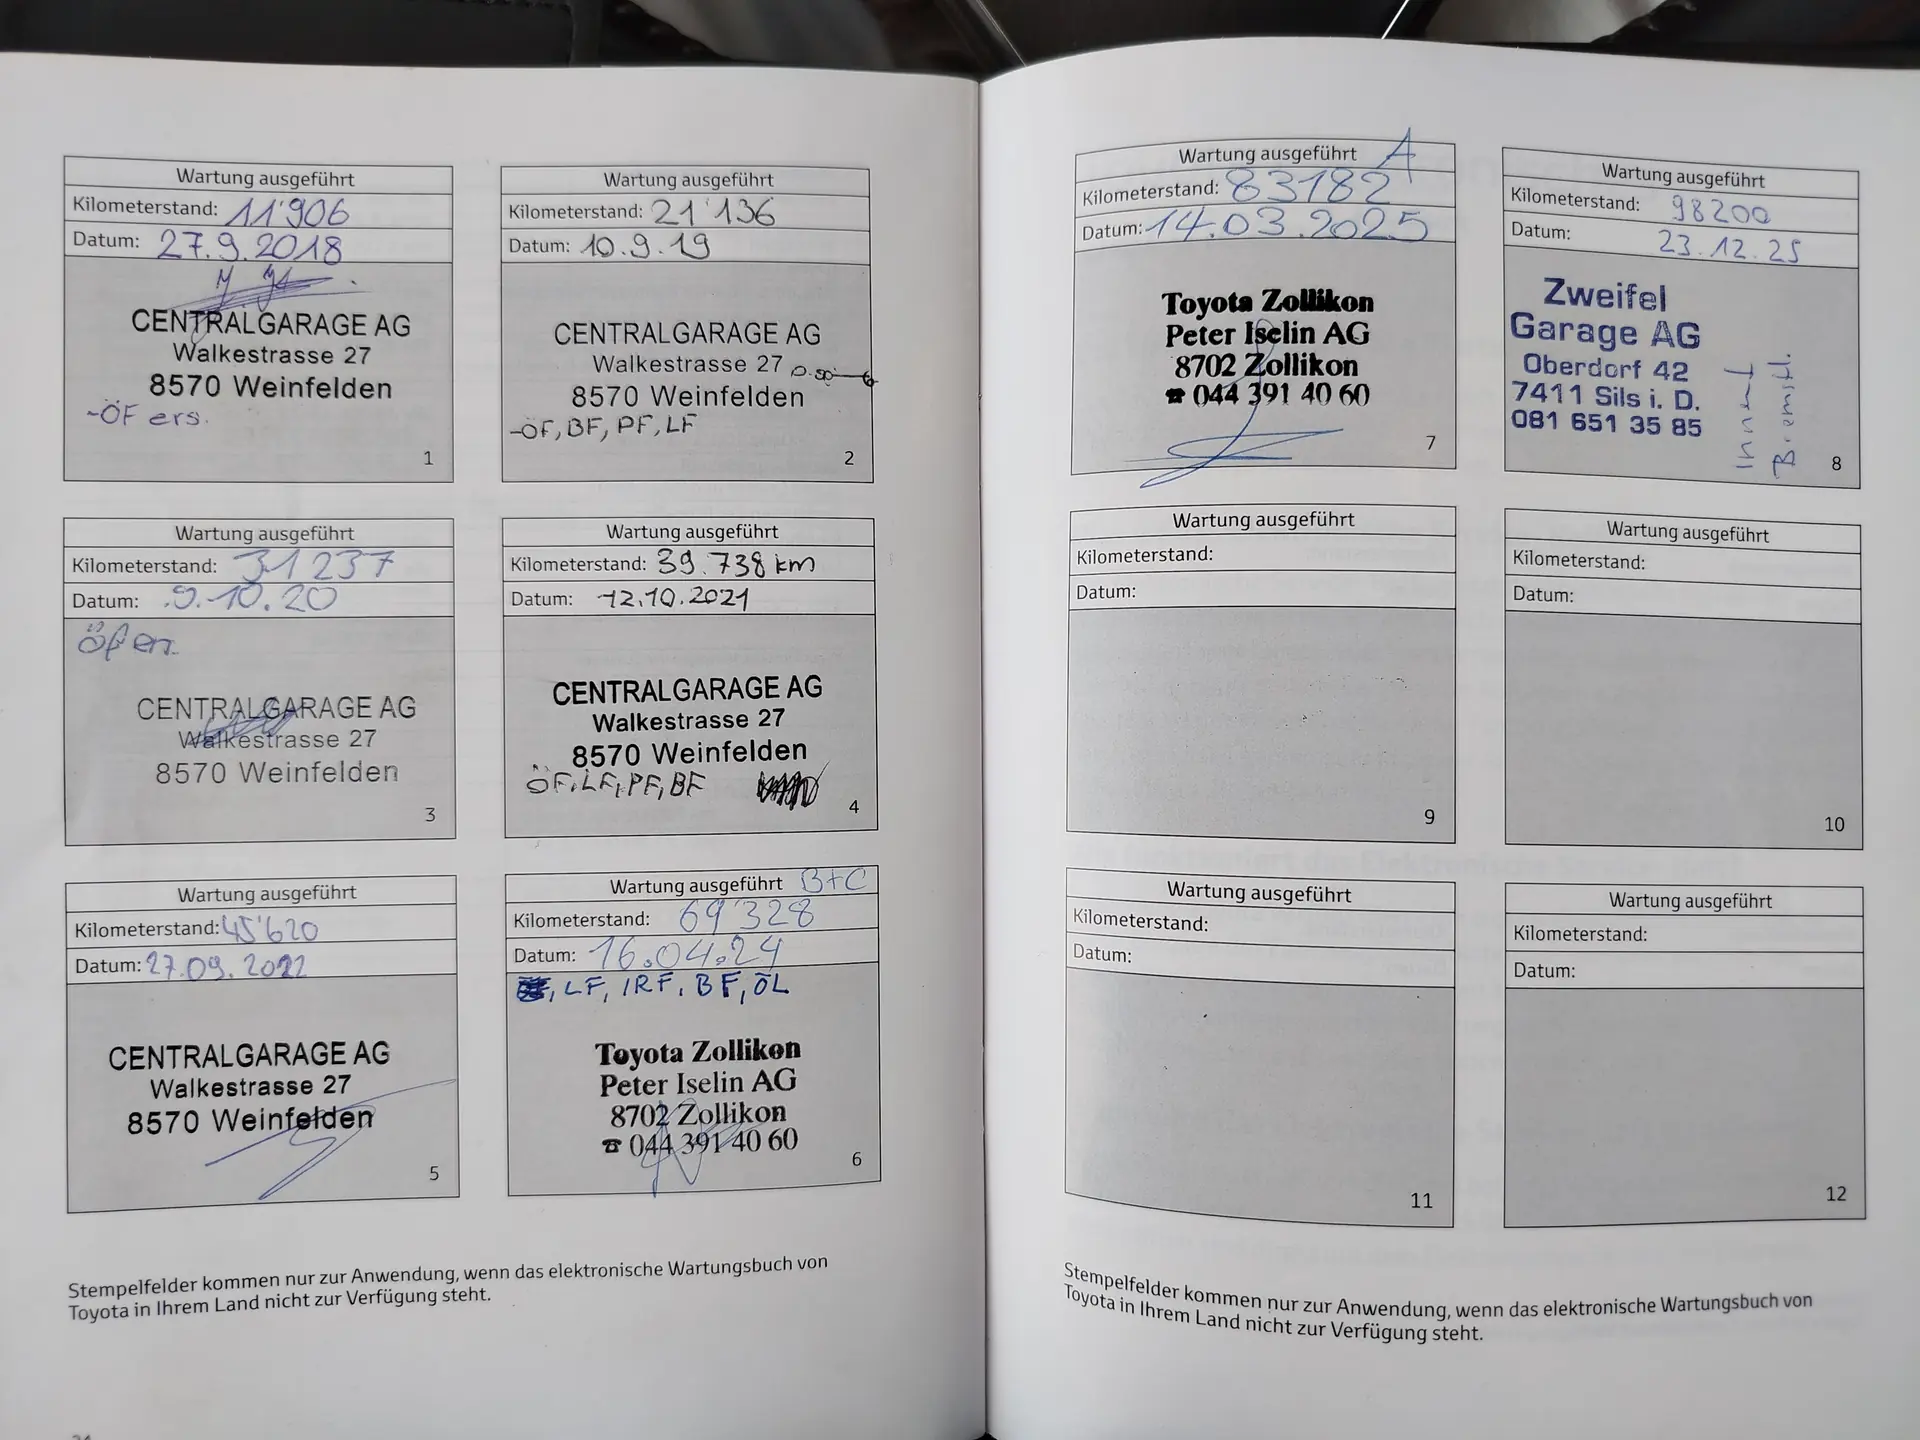 Wartung ausgeführt
Kilometerstand: 11'906
Datum: 27.9.2018
CENTRALGARAGE AG
Walkestrasse 27
8570 Weinfelden
-ÖF ers.
1
Wartung ausgeführt
Kilometerstand: 21'136
Datum: 10.9.19
CENTRALGARAGE AG
Walkestrasse 27
8570 Weinfelden
-ÖF, BF, PF, LF
2
Wartung ausgeführt
Kilometerstand: 31237
Datum: 9.10.20
CENTRALGARAGE AG
Walkestrasse 27
8570 Weinfelden
3
Wartung ausgeführt
Kilometerstand: 39.738 km
Datum: 12.10.2021
CENTRALGARAGE AG
Walkestrasse 27
8570 Weinfelden
ÖF, LF, PF, BF
4
Wartung ausgeführt
Kilometerstand: 45'620
Datum: 27.09.2022
CENTRALGARAGE AG
Walkestrasse 27
8570 Weinfelden
5
Wartung ausgeführt B+C
Kilometerstand: 69'328
Datum: 16.04.24
, LF, IRF, BF, ÖL
Toyota Zollikon
Peter Iselin AG
8702 Zollikon
☎ 044 391 40 60
6
Stempelfelder kommen nur zur Anwendung, wenn das elektronische Wartungsbuch von
Toyota in Ihrem Land nicht zur Verfügung steht.
Wartung ausgeführt A
Kilometerstand: 83182
Datum: 14.03.2025
Toyota Zollikon
Peter Iselin AG
8702 Zollikon
☎ 044 391 40 60
7
Wartung ausgeführt
Kilometerstand: 98200
Datum: 23.12.25
Zweifel
Garage AG
Oberdorf 42
7411 Sils i. D.
081 651 35 85
8
Wartung ausgeführt
Kilometerstand:
Datum:
9
Wartung ausgeführt
Kilometerstand:
Datum:
10
Wartung ausgeführt
Kilometerstand:
Datum:
11
Wartung ausgeführt
Kilometerstand:
Datum:
12
Stempelfelder kommen nur zur Anwendung, wenn das elektronische Wartungsbuch von
Toyota in Ihrem Land nicht zur Verfügung steht.